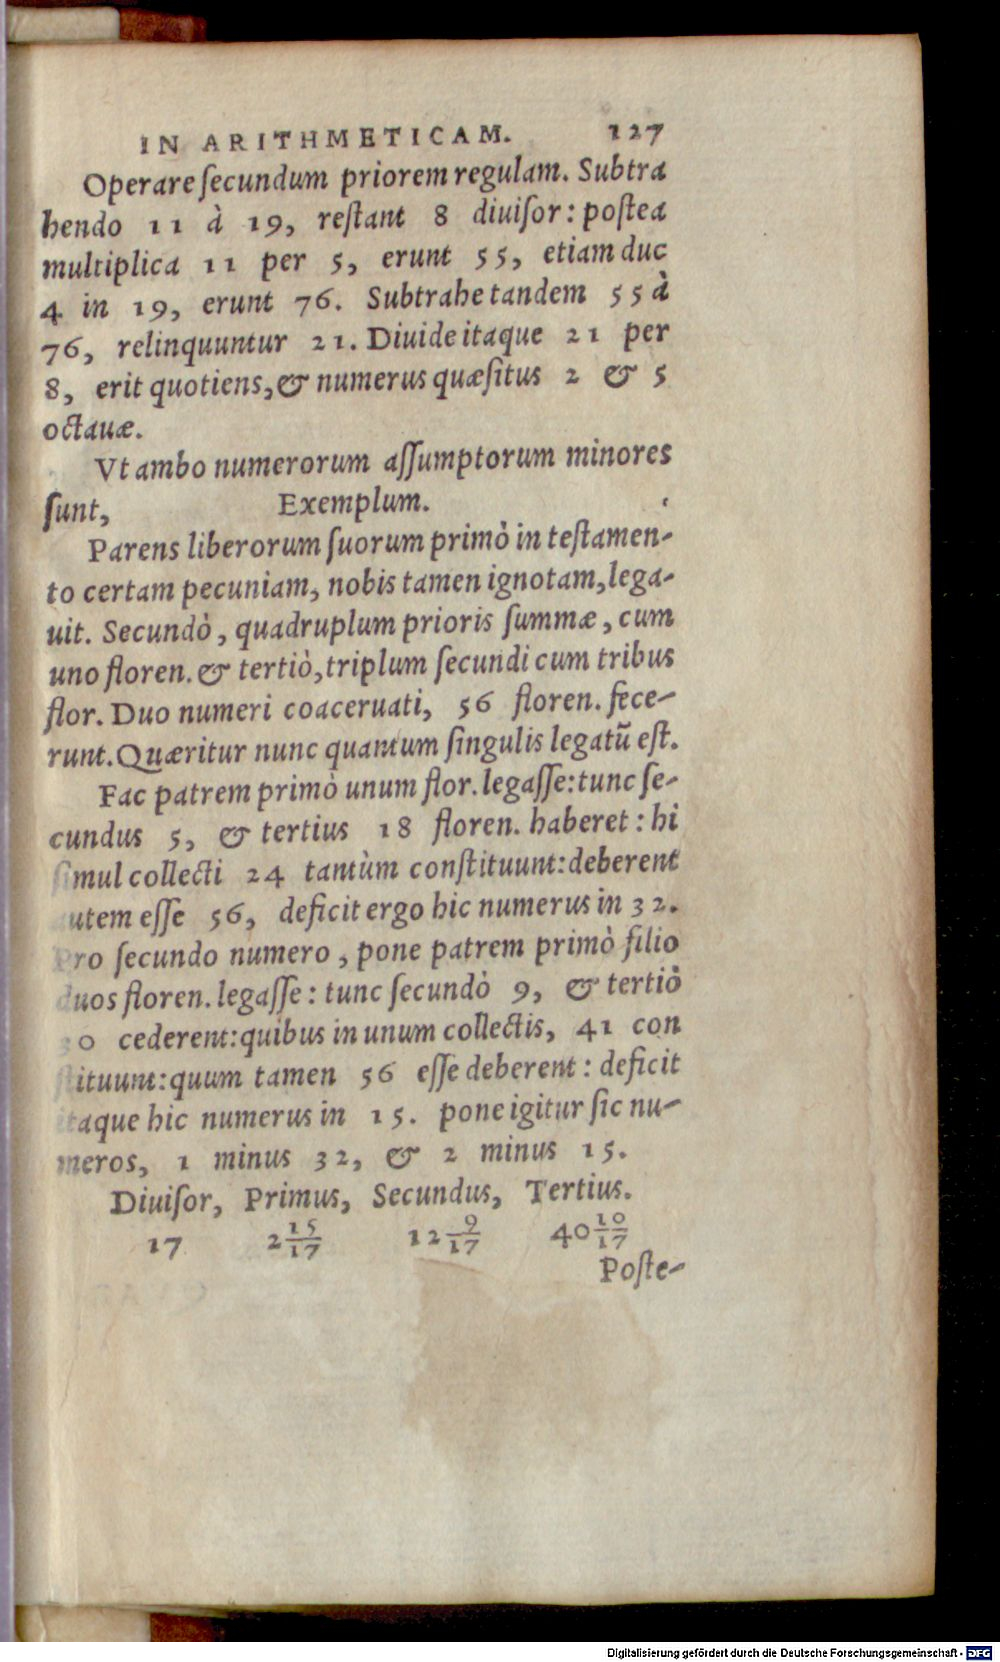 IN ARITHMETICAM. 127
Operare ſecundum priorem regulam. Subtra
hendo 11 à 19, reſtant 8 diuiſor: poſtea
multiplica 11 per 5, erunt 55, etiam duc
4 in 19, erunt 76. Subtrahe tandem 55 à
76, relinquuntur 21. Diuide itaque 21 per
8, erit quotiens, & numerus quæſitus 2 & 5
octauæ.
Vt ambo numerorum aſſumptorum minores
ſunt, Exemplum.
Parens liberorum ſuorum primò in teſtamen-
to certam pecuniam, nobis tamen ignotam, lega-
uit. Secundò, quadruplum prioris ſummæ, cum
uno floren. & tertiò, triplum ſecundi cum tribus
flor. Duo numeri coaceruati, 56 floren. fece-
runt. Quæritur nunc quantum ſingulis legatũ eſt.
Fac patrem primò unum flor. legaſſe: tunc ſe-
cundus 5, & tertius 18 floren. haberet: hi
ſimul collecti 24 tantùm conſtituunt: deberent
autem eſſe 56, deficit ergo hic numerus in 32.
Pro ſecundo numero, pone patrem primò filio
duos floren. legaſſe: tunc ſecundò 9, & tertiò
30 cederent: quibus in unum collectis, 41 con
ſtituunt: quum tamen 56 eſſe deberent: deficit
itaque hic numerus in 15. pone igitur ſic nu-
meros, 1 minus 32, & 2 minus 15.
Diuiſor, Primus, Secundus, Tertius.
17 2 15/17 12 9/17 40 10/17
Poſte-
Digitalisierung gefördert durch die Deutsche Forschungsgemeinschaft - DFG